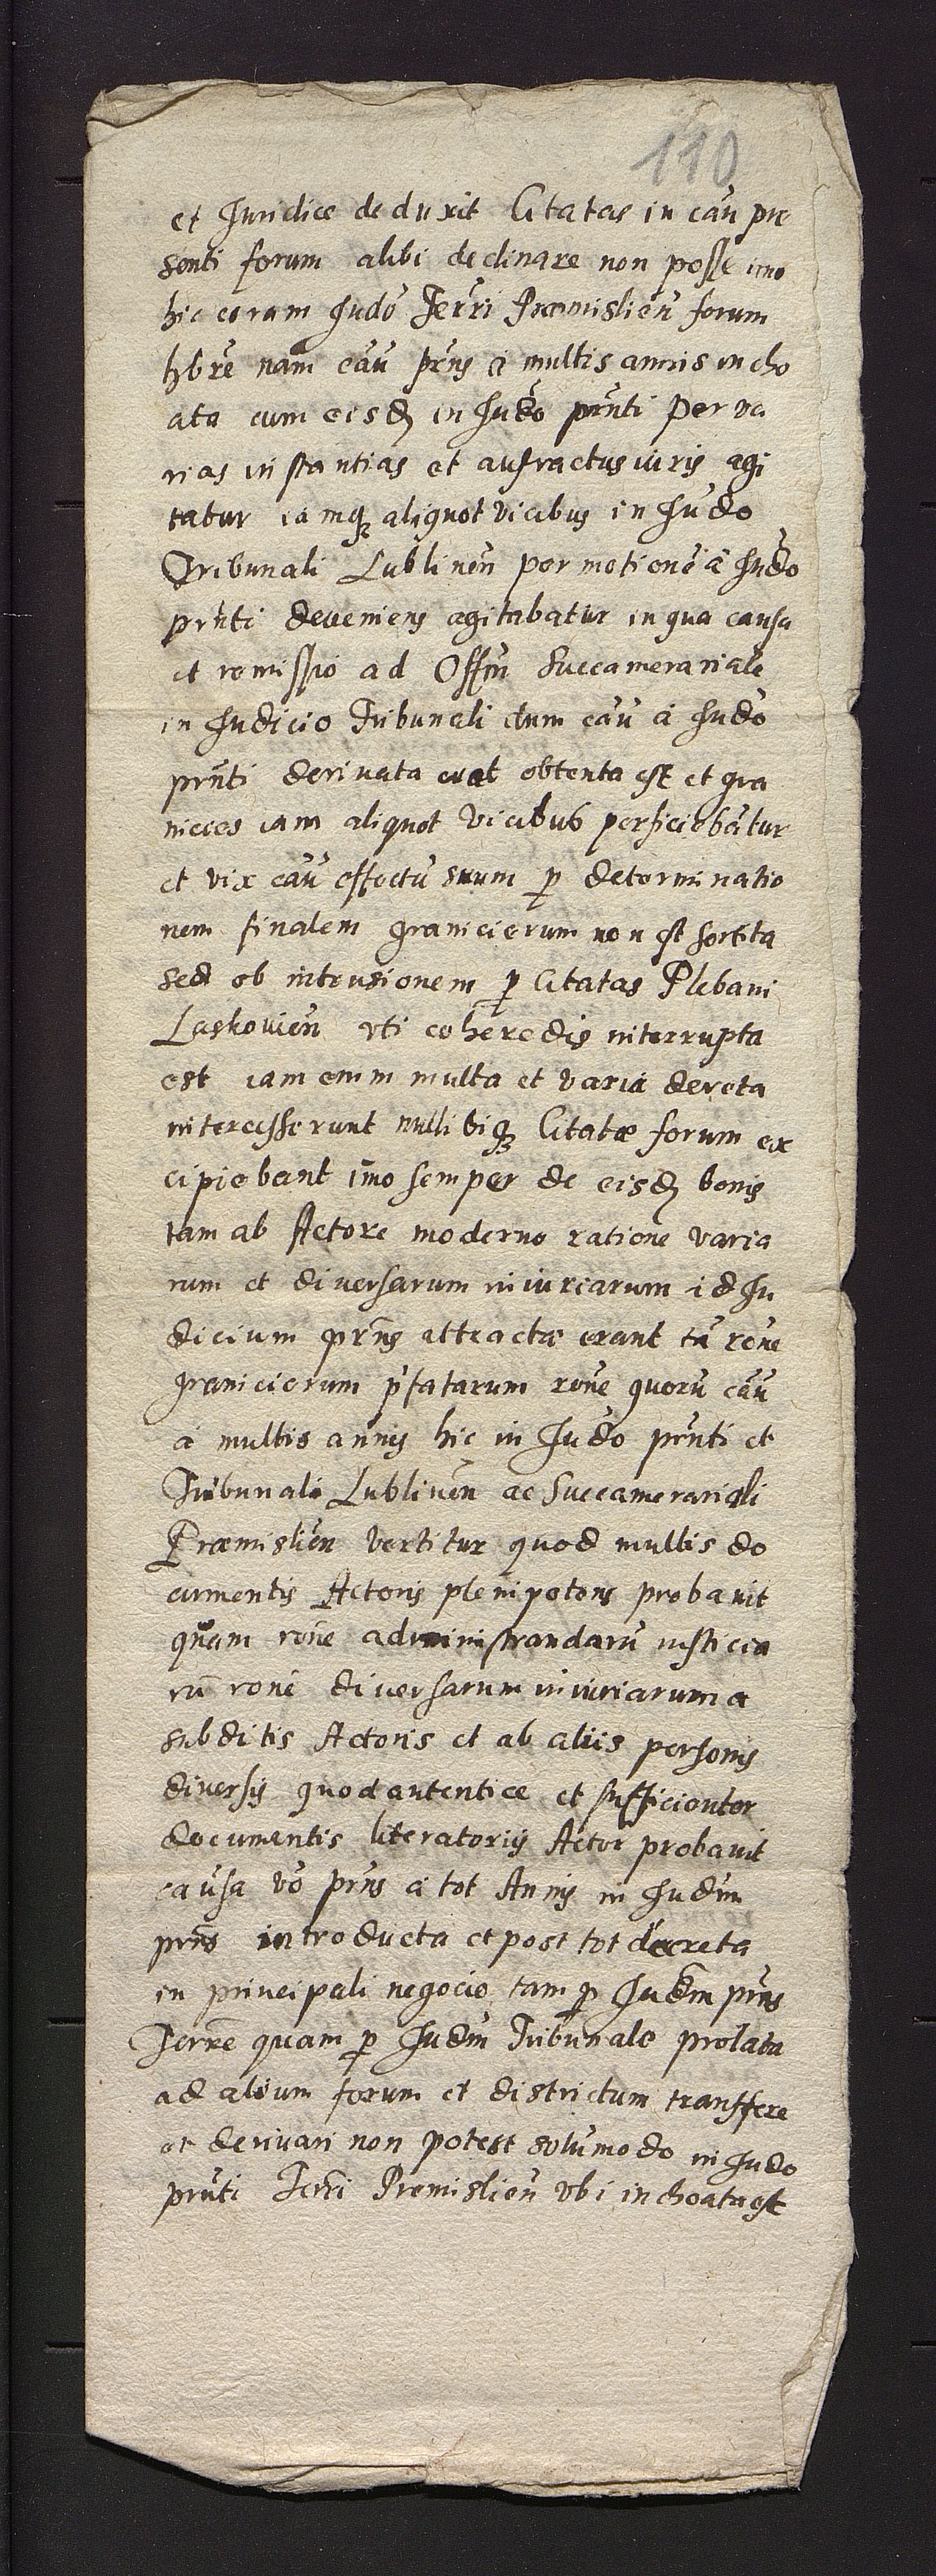 110
et Juridice deduxit Citatas in cãu prę
senti forum alibi declinare non posse imo
hic coram Judõ Terri Præmislieñ forum
hbre nam cãu prñs á multis annis incho
ata cum eisd in Judõ prñti per va
rias instantias et anfractus iuris agi
tatur iamq aliquot vicibus in Judõ
Tribunali Lublineñ per motionẽ á Judõ
prñti deveniens agitabatur in qua causa
et remissio ad Offm Succamerariale
in Judicio Tribunali dum cãu á Judõ
prñti derivata erat obtenta est et gra
nicies iam aliquot vicibus perficiebatur
et vix cãu effectũ suum p determinatio
nem finalem granicierum non est sortita
sed ob intrusionem p Citatas Plebani
Laskovieñ vti coheredis interrupta
est iam enim multa et varia decreta
intercesserunt nullibiq Citatæ forum ex
cipiebant imo semper de eisd bonis
tam ab Actore moderno ratione varia
rum et diversarum iniuriarum id Ju
dicium prñs attractæ erant tũ rõne
granicierum pfatarum rõne quorũ cãu
á multis annis hic in Judõ prñti et
Tribunali Lublineñ ac Succamerariali
Præmislieñ vertitur quod multis do
cumentis Actoris plenipotens probavit
quam rõne administrandarũ iusticia
rũ rõne diversarum iniuriarum a
subditis Actoris et ab aliis personis
diversis quod autentice et sufficienter
documentis literatoriis Actor probavit
causa vo prñs á tot Annis in Judm
prñs introducta et post tot decreta
in principali negocio tam p Judm prñs
Terrre quam p Judm Tribunale prolata
ad alium forum et districtum transfere
et derivari non potest solumodo in Judo
prñti Terri Premislieñ vbi inchoata est